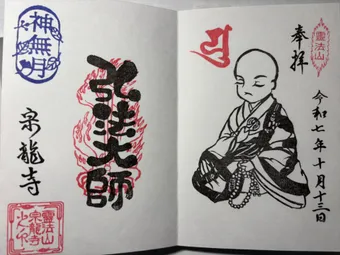 奉拝
靈法山
令和七年十月十三日
弘法大師
神無月
宗龍寺
靈法山
宗龍寺